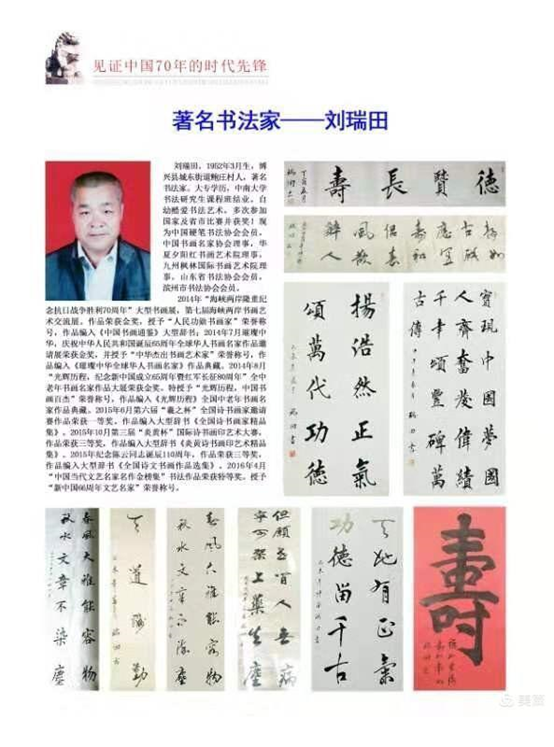 见证中国70年的时代先锋
著名书法家——刘瑞田
刘瑞田，1952年3月生，博
兴县城东街道鲍庄村人，著名
书法家。大专学历，中南大学
书法研究生课程班结业。自
幼酷爱书法艺术。多次参加
国家及省市比赛并获奖！现
为中国硬笔书法协会会员，
中国书画名家协会理事，华
夏夕阳红书画艺术院理事，
九州枫林国际书画艺术院理
事，山东省书法协会会员，
滨州市书法协会会员。
2014年“海峡两岸隆重纪
念抗日战争胜利70周年”大型书画展，第七届海峡两岸书画艺
术交流展，作品荣获金奖，授予“人民功勋书画家”荣誉称
号，作品编入《中国书画通鉴》大型辞书，2014年7月璀璨中
华，庆祝中华人民共和国诞辰65周年全球华人书画名家作品邀
请展荣获金奖，并授予“中华杰出书画艺术家”荣誉称号，作
品编入《璀璨中华全球华人书画名家》作品典藏。2014年8月
“光辉历程，纪念新中国成立65周年暨红军长征80周年”全中
老年书画名家作品大展荣获金奖。特授予“光辉历程，中国书
画百杰”荣誉称号，作品编入《光辉历程》全国中老年书画名
家作品典藏。2015年6月第六届“羲之杯”全国诗书画家邀请
赛作品荣获一等奖，作品编入大型辞书《全国诗书画家精品
集》。2015年10月第三届“炎黄杯”国际诗书画印艺术大赛，
作品荣获三等奖，作品编入大型辞书《炎黄诗书画印艺术精品
集》。2015年纪念陈云同志诞辰110周年，作品荣获三等奖，
作品编入大型辞书《全国诗文书画作品选集》。2016年4月
“中国当代文艺名家名作金榜集”书法作品荣获特等奖。授予
“新中国66周年文艺名家”荣誉称号。
德贊長壽
實現中國夢國
人齊奮發偉績
千秉頌豐碑萬
古傳
揚浩然正氣
頌萬代功德
春風大雅能容物
秋水文章不染塵
天道酬勤
春風大雅能容物
秋水文章不染塵
但願世間人無病
寧可架上藥生塵
天地有正氣
功德留千古
壽